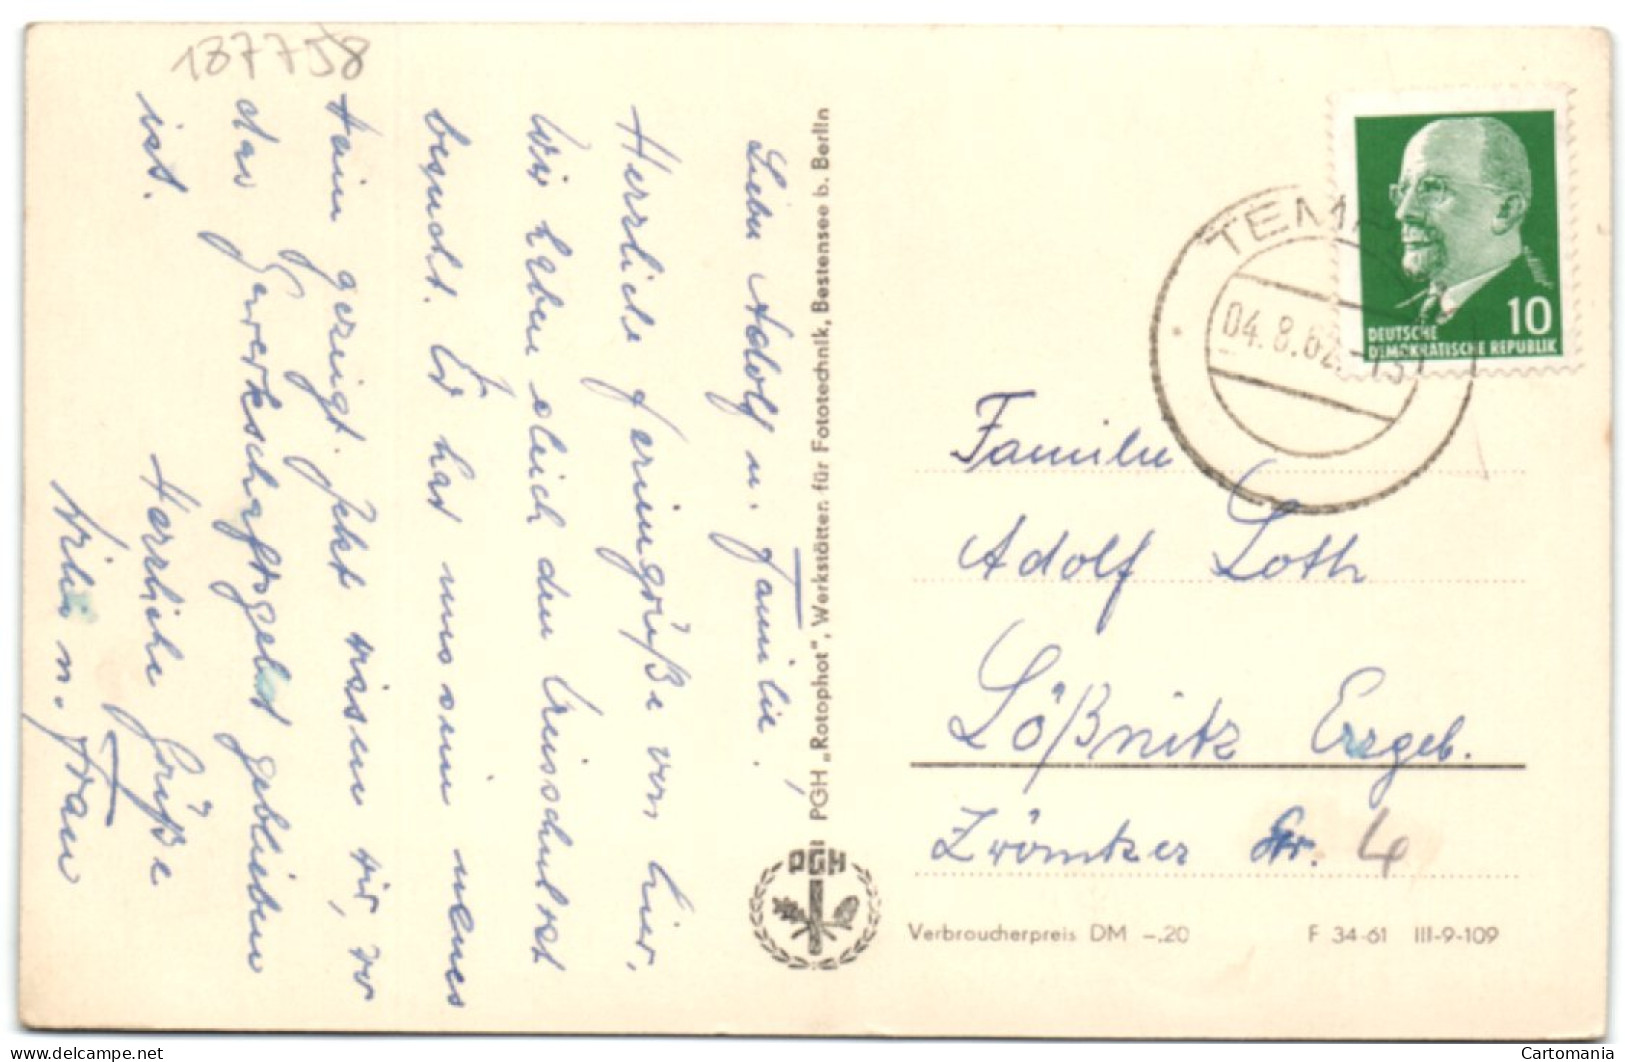 187758
Lieber Adolf u. Familie!
Herrliche Feriengrüße von hier.
Wir haben gleich den Kreisschulrat
besucht. Er hat uns sein neues
Heim gezeigt. Jetzt wissen wir, wo
das Gewerkschaftsgeld geblieben
ist.
Herzliche Grüße
u. Frau
PGH „Rotophot“, Werkstätten für Fototechnik, Bestensee b. Berlin
PGH
DEUTSCHE
DEMOKRATISCHE REPUBLIK
10
04.8.62.-15
Familie
Adolf Loth
Lößnitz Erzgeb.
Str. 4
Verbraucherpreis DM –.20 F 34-61 III-9-109
delcampe.net
Cartomania